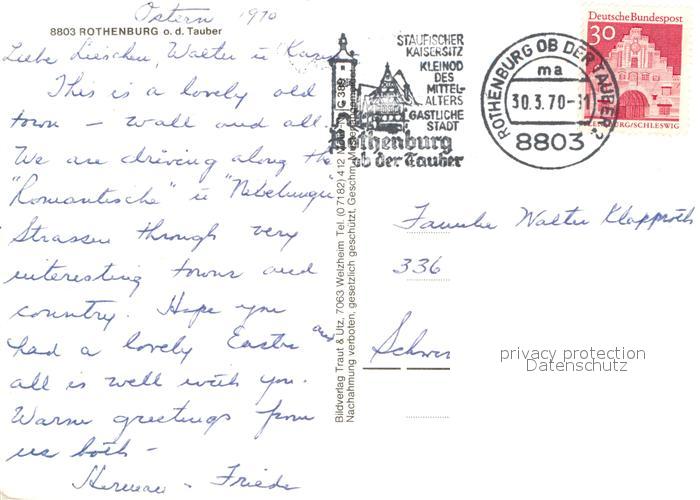 Ostern 1970
8803 ROTHENBURG o. d. Tauber
Liebe Lieschen, Walter u Karin
This is a lovely old
town — wall and all.
We are driving along the
"Romantische" u "Nibelungen"
Strassen through very
interesting towns and
country. Hope you
had a lovely Easter and
all is well with you.
Warm greetings from
us both -
Herman - Friede
Bildverlag Traut & Utz, 7063 Welzheim Tel. (07182) 412
Nachahmung verboten, gesetzlich geschützt, Gesch.
STAUFISCHER
KAISERSITZ
KLEINOD
DES
MITTEL-
ALTERS
GASTLICHE
STADT
Rothenburg
ob der Tauber
ROTHENBURG OB DER TAUBER
ma
30.3.70-11
8803
Deutsche Bundespost
30
FLENSBURG/SCHLESWIG
Familie Walter Klapproth
336
Schwer
privacy protection
Datenschutz